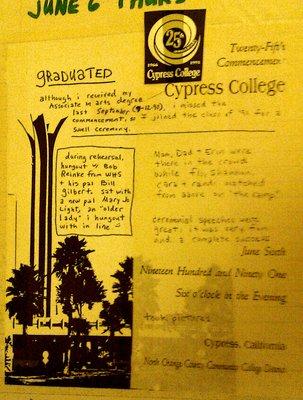 JUNE 6 THURS
25th
1966 1991
Cypress College
Twenty-Fifth
Commencement
Cypress College
GRADUATED
although i received my
Associate in arts degree
last september (9-12-90), i missed the
commencement, so i joined the class of '91 for a
swell ceremony.
during rehearsal,
hungout w/ Bob
Reinke from WHS
+ his pal Bill
Gilbert. sat with
a new pal Mary Jo
Light, an "older
lady" i hungout
with in line
Mom, Dad + Erin were
there in the crowd
while
Shannon,
cara + randi watched
from above on "the ramp"
ceremonial speeches were
great. it was very fun
and a complete success
June Sixth
Nineteen Hundred and Ninety One
Six o'clock in the Evening
took pictures
Cypress, California
North Orange County Community College District